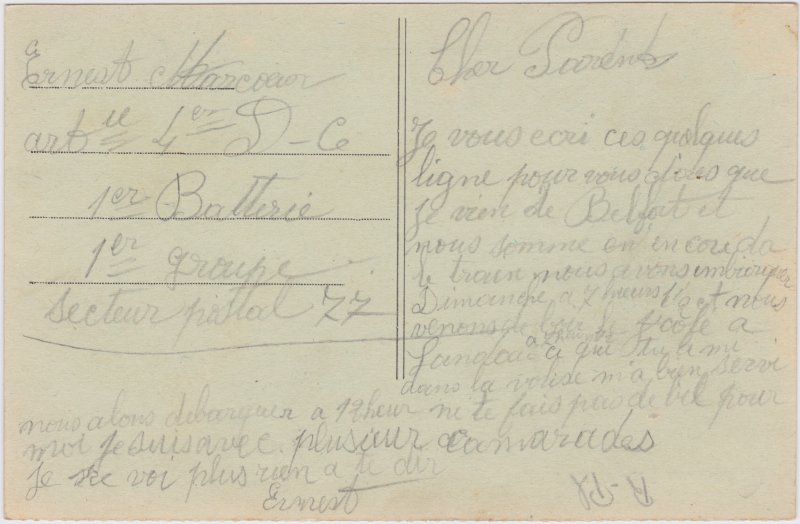 Ernest
art ie 4er D-C
1er Batterie
1er groupe
secteur postal 77
Cher Parents
Je vous ecri ces quelques
ligne pour vous dires que
Je vien de Belfort et
nous somme encore da
le train nous avons
Dimanche a 7 heurs 1/2 et nous
venons de boir le cafe a
a ce qui tu a mi
dans la m'a bien servi
nous alons debarquer a 12 heur ne te fais pas de bil pour
moi Je suis avec plusieur camarades
Je ne voi plus rien a te dir
Ernest